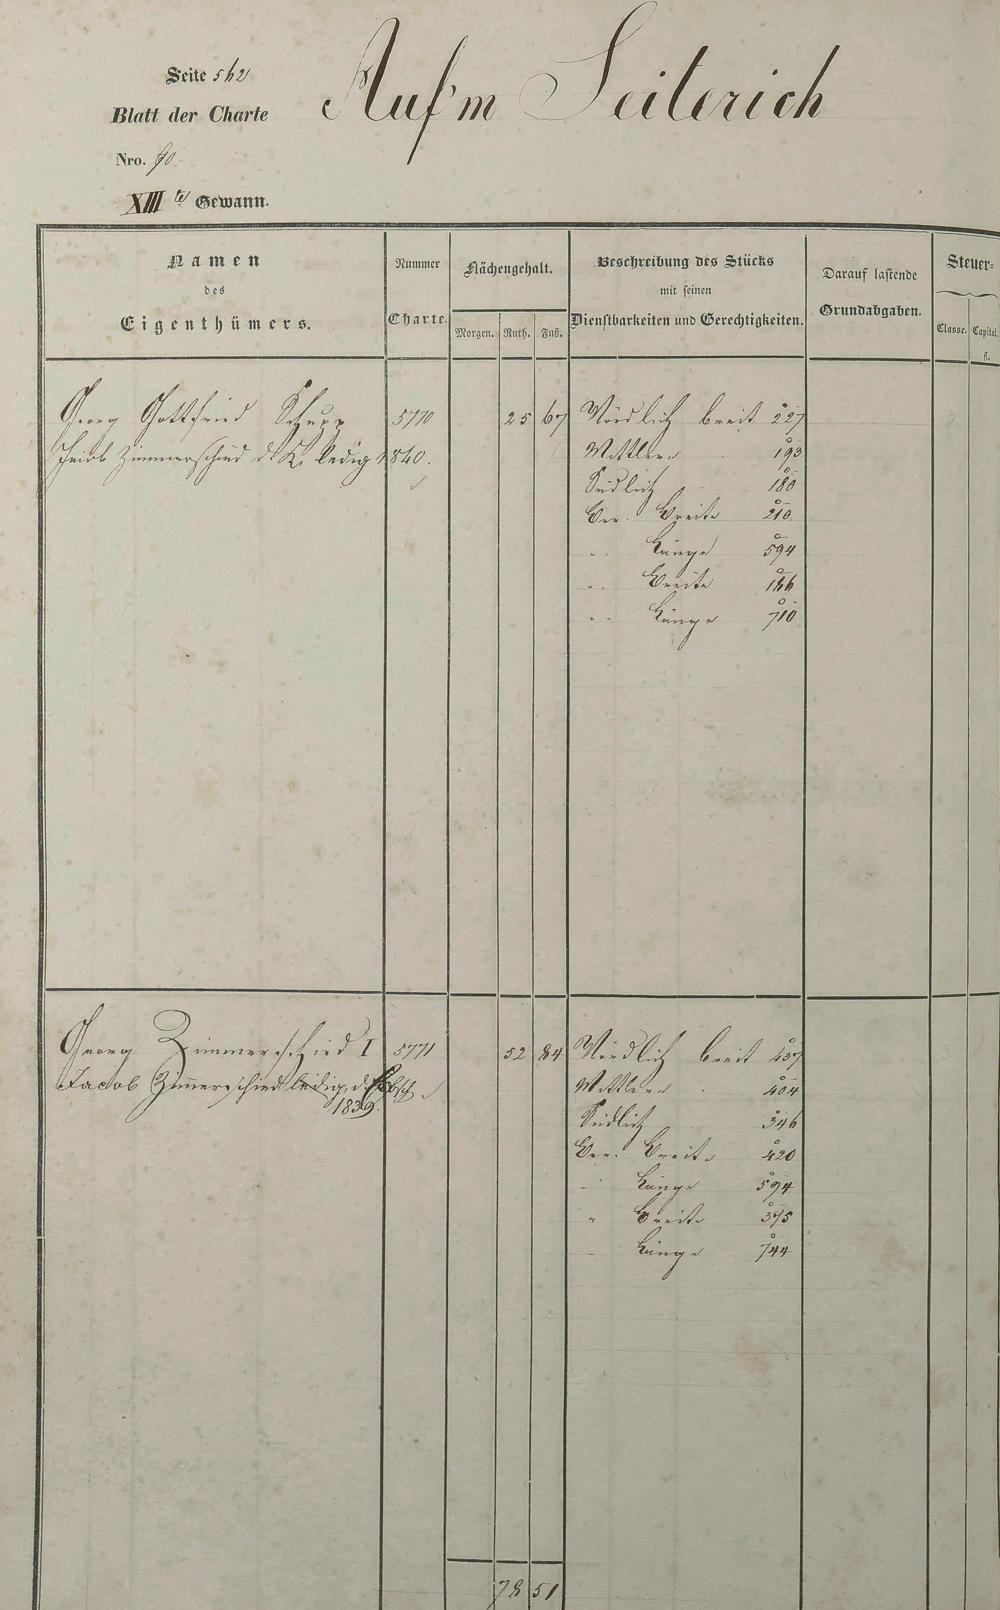 Seite 562
Blatt der Charte
Nro. 90
XIII te Gewann.
Auf'm Seiterich
Namen
des
Eigenthümers.
Nummer
Charte.
Flächengehalt.
Morgen. Ruth. Fuß.
Beschreibung des Stücks
mit seinen
Dienstbarkeiten und Gerechtigkeiten.
Darauf lastende
Grundabgaben.
Steuer-
Classe. Capital.
fl.
Georg Gottfried Schupp 5770 25 67 Nördlich breit 227
Jacob Zimmerschied d. K. ledig 1840. Mittlere 193
Südlich 180
Ver. Breite 210
" Länge 594
" Breite 186
" Länge 710
Georg Zimmerschied I 5771 52 84 Nördlich breit 437
Jacob Zimmerschied ledig, d. Mittlere 404
1839. Südlich 346
Ver. Breite 420
" Länge 594
" Breite 375
" Länge 744
78 51